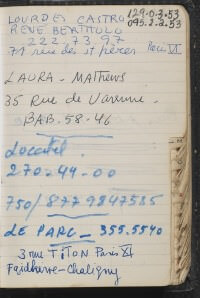 LOURDES CASTRO
129.0.3.53
095.2.3.53
RENE BERTHOLO
222.73.97
71 rue des St pères Paris VI
LAURA - Mathews
35 Rue de Varenne.
BAB. 58-46
Locatel.
270-44-00
750/8779847585
LE PARC - 355.5540
3 rue TITON Paris XI
Faidherbe-Chaligny